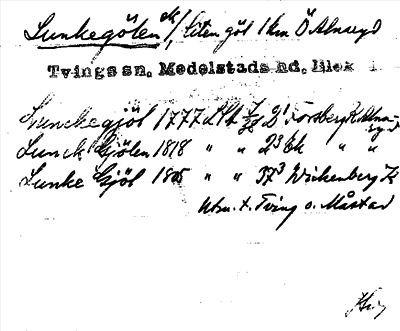 Lunkegölen ek/, liten göl 1 km Ö Alnaryd
Tvings sn. Medelstads hd. Blek
Lunckegjöl 1777 Lth 2¹ Forsberg K Alnaryd
Lunck Gjölen 1818 " " 2³ Ek " "
Lunke Gjöl 1805 " " 37³ Wickenberg K
Utsn. t. Tving o. Måstad